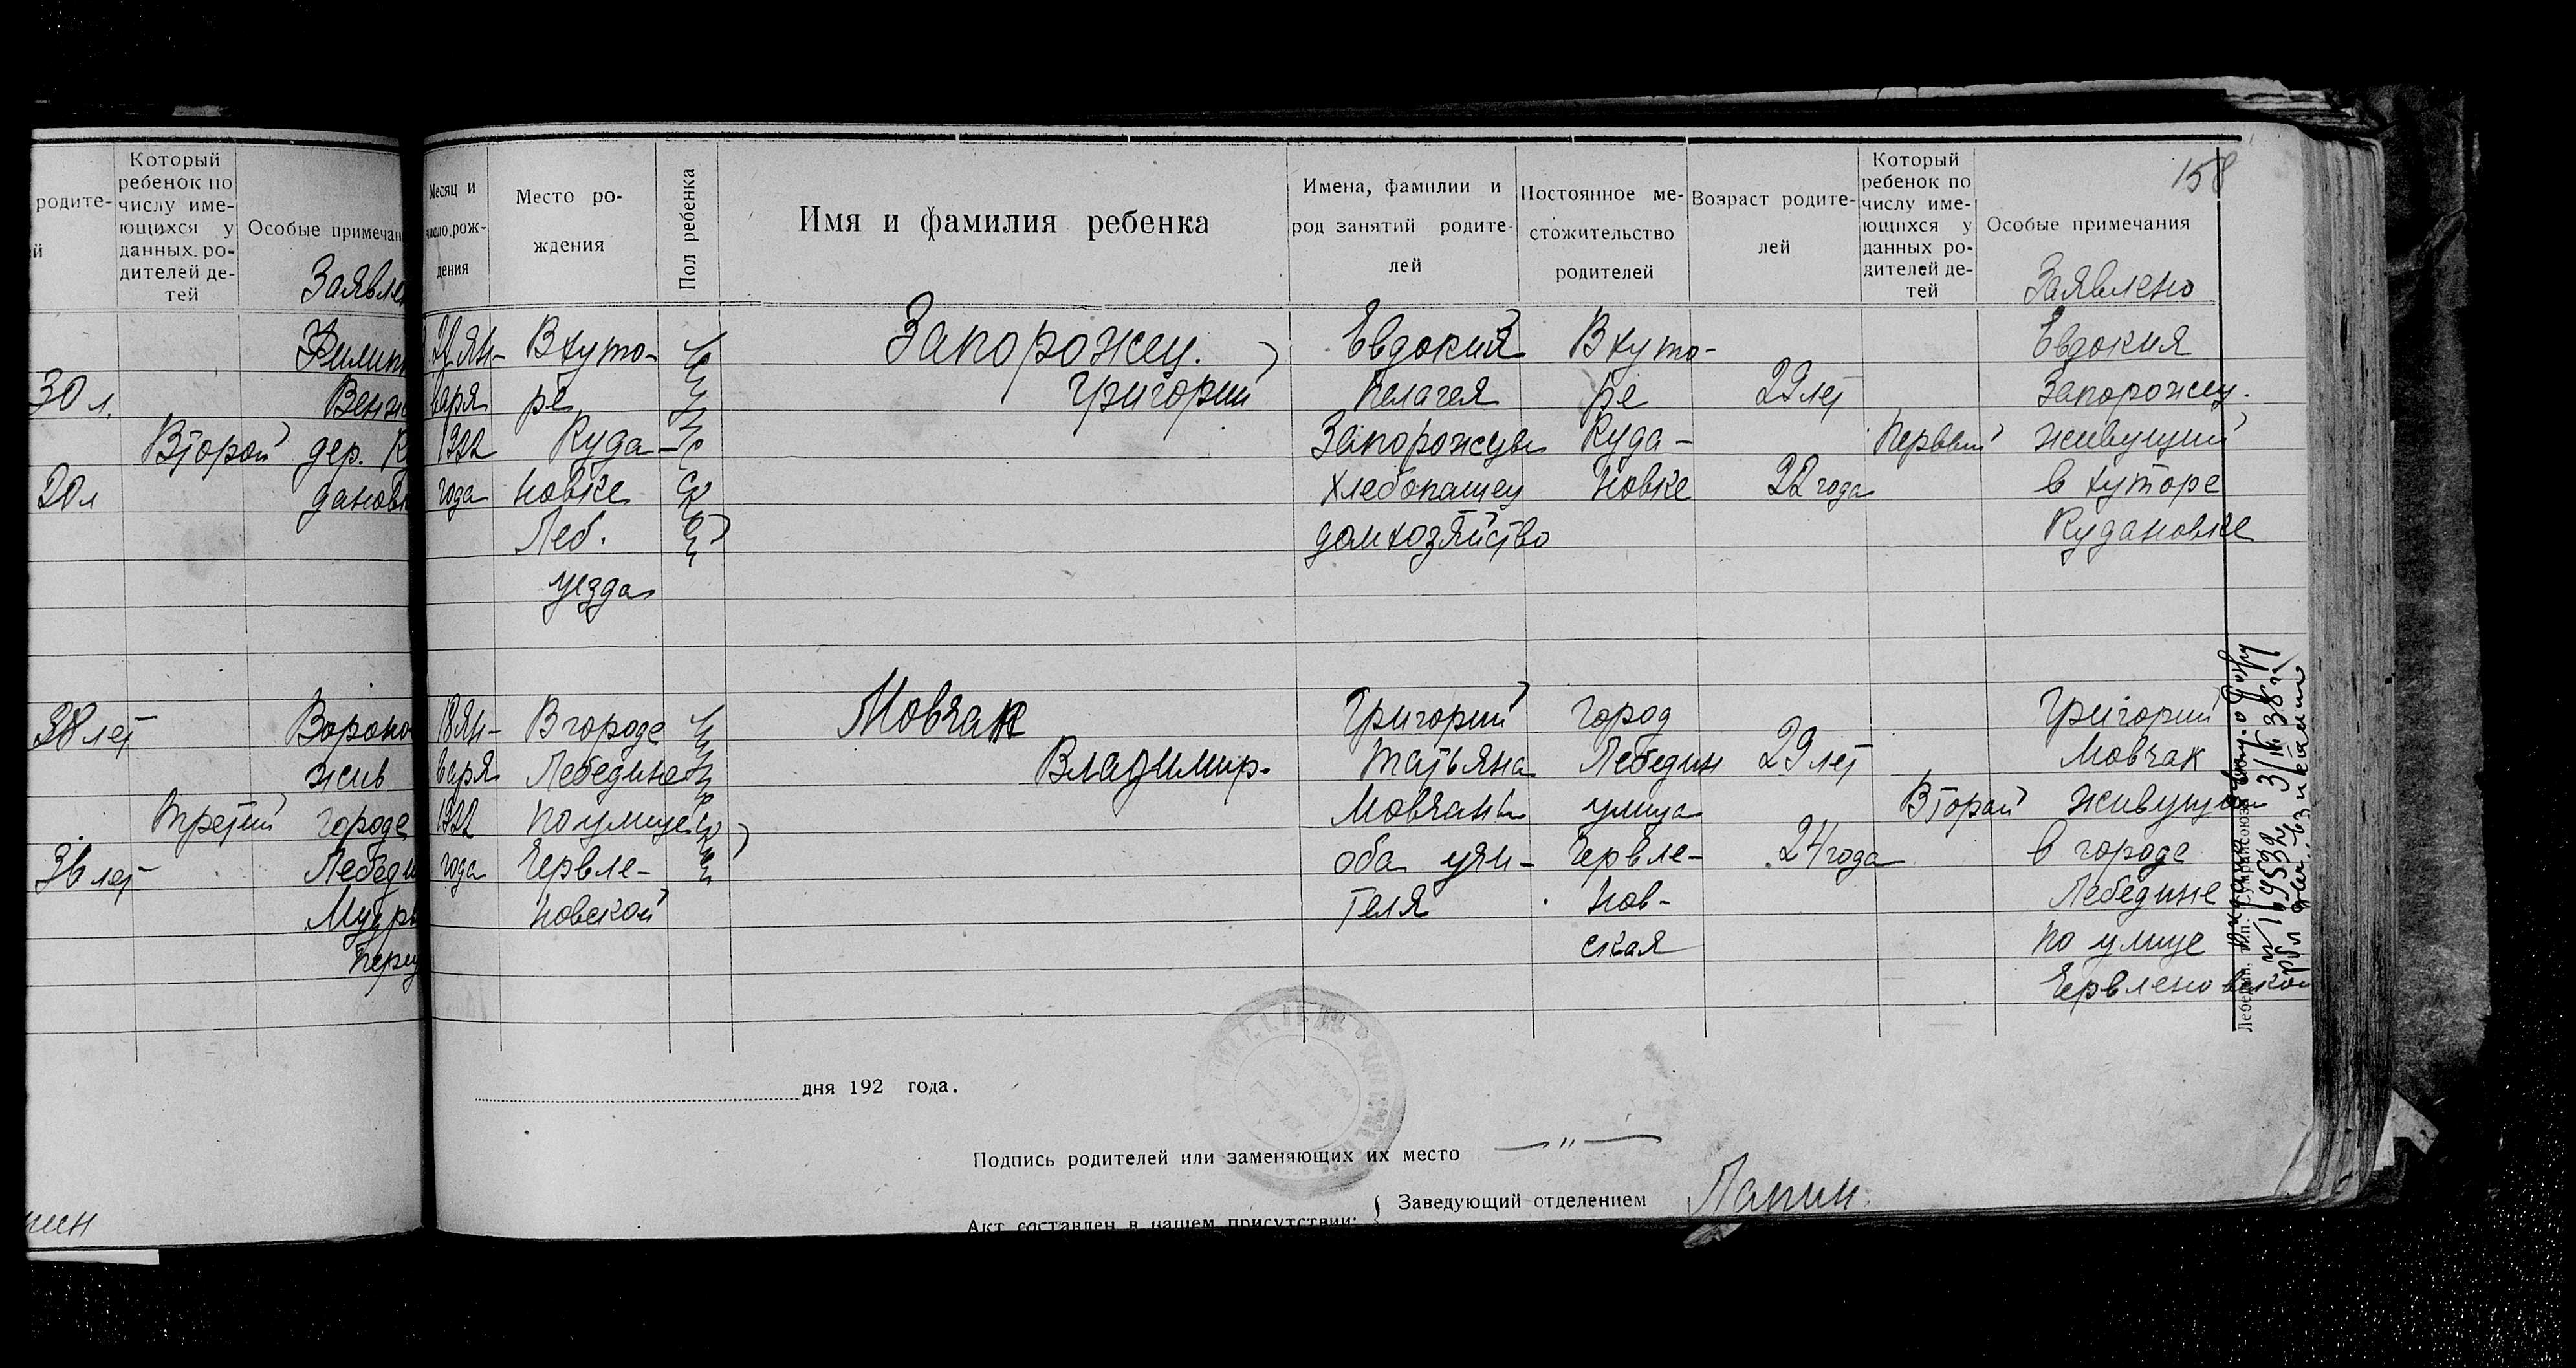 родите-
й
Который
ребенок по
числу име-
ющихся у
данных ро-
дителей де-
тей
Особые примечан
Заявлен
30 л.
20 л
Второй
Филип
Венж
дер. К
дановк
38 лет
36 лет
Третий
Вороно
жив
городе
Лебеди
пер
нин
158
Месяц и
число рож-
дения
Место ро-
ждения
Пол ребенка
Имя и фамилия ребенка
Имена, фамилии и
род занятий родите-
лей
Постоянное ме-
стожительство
родителей
Возраст родите-
лей
Который
ребенок по
числу име-
ющихся у
данных ро-
дителей де-
тей
Особые примечания
Заявлено
22 Ян-
варя
1922
года
В хуто-
ре
Куда-
новке
Леб.
уезда
Мужеской
Запорожец.
Григорий
Евдокий
Пелагея
Запорожцы
хлебопашец
домхозяйство
В хуто-
ре
Куда-
новке
29 лет
22 года
Первый
Евдокия
Запорожец.
живущий
в хуторе
Кудановке
18 Ян-
варя
1922
года
В городе
Лебедине
по улице
Червле-
новской
Мужеской
Мовчан
Владимир.
Григорий
Татьяна
Мовчаны
оба учи-
теля
Город
Лебедин
улица
Червле-
нов-
ская
29 лет
24 года
Второй
Григорий
Мовчан
живущий
в городе
Лебедине
по улице
Червленовской
№ 169532 3/III 38 г.
дня 192 года.
Подпись родителей или заменяющих их место — " —
Акт составлен в нашем присутствии:
Заведующий отделением Лапин